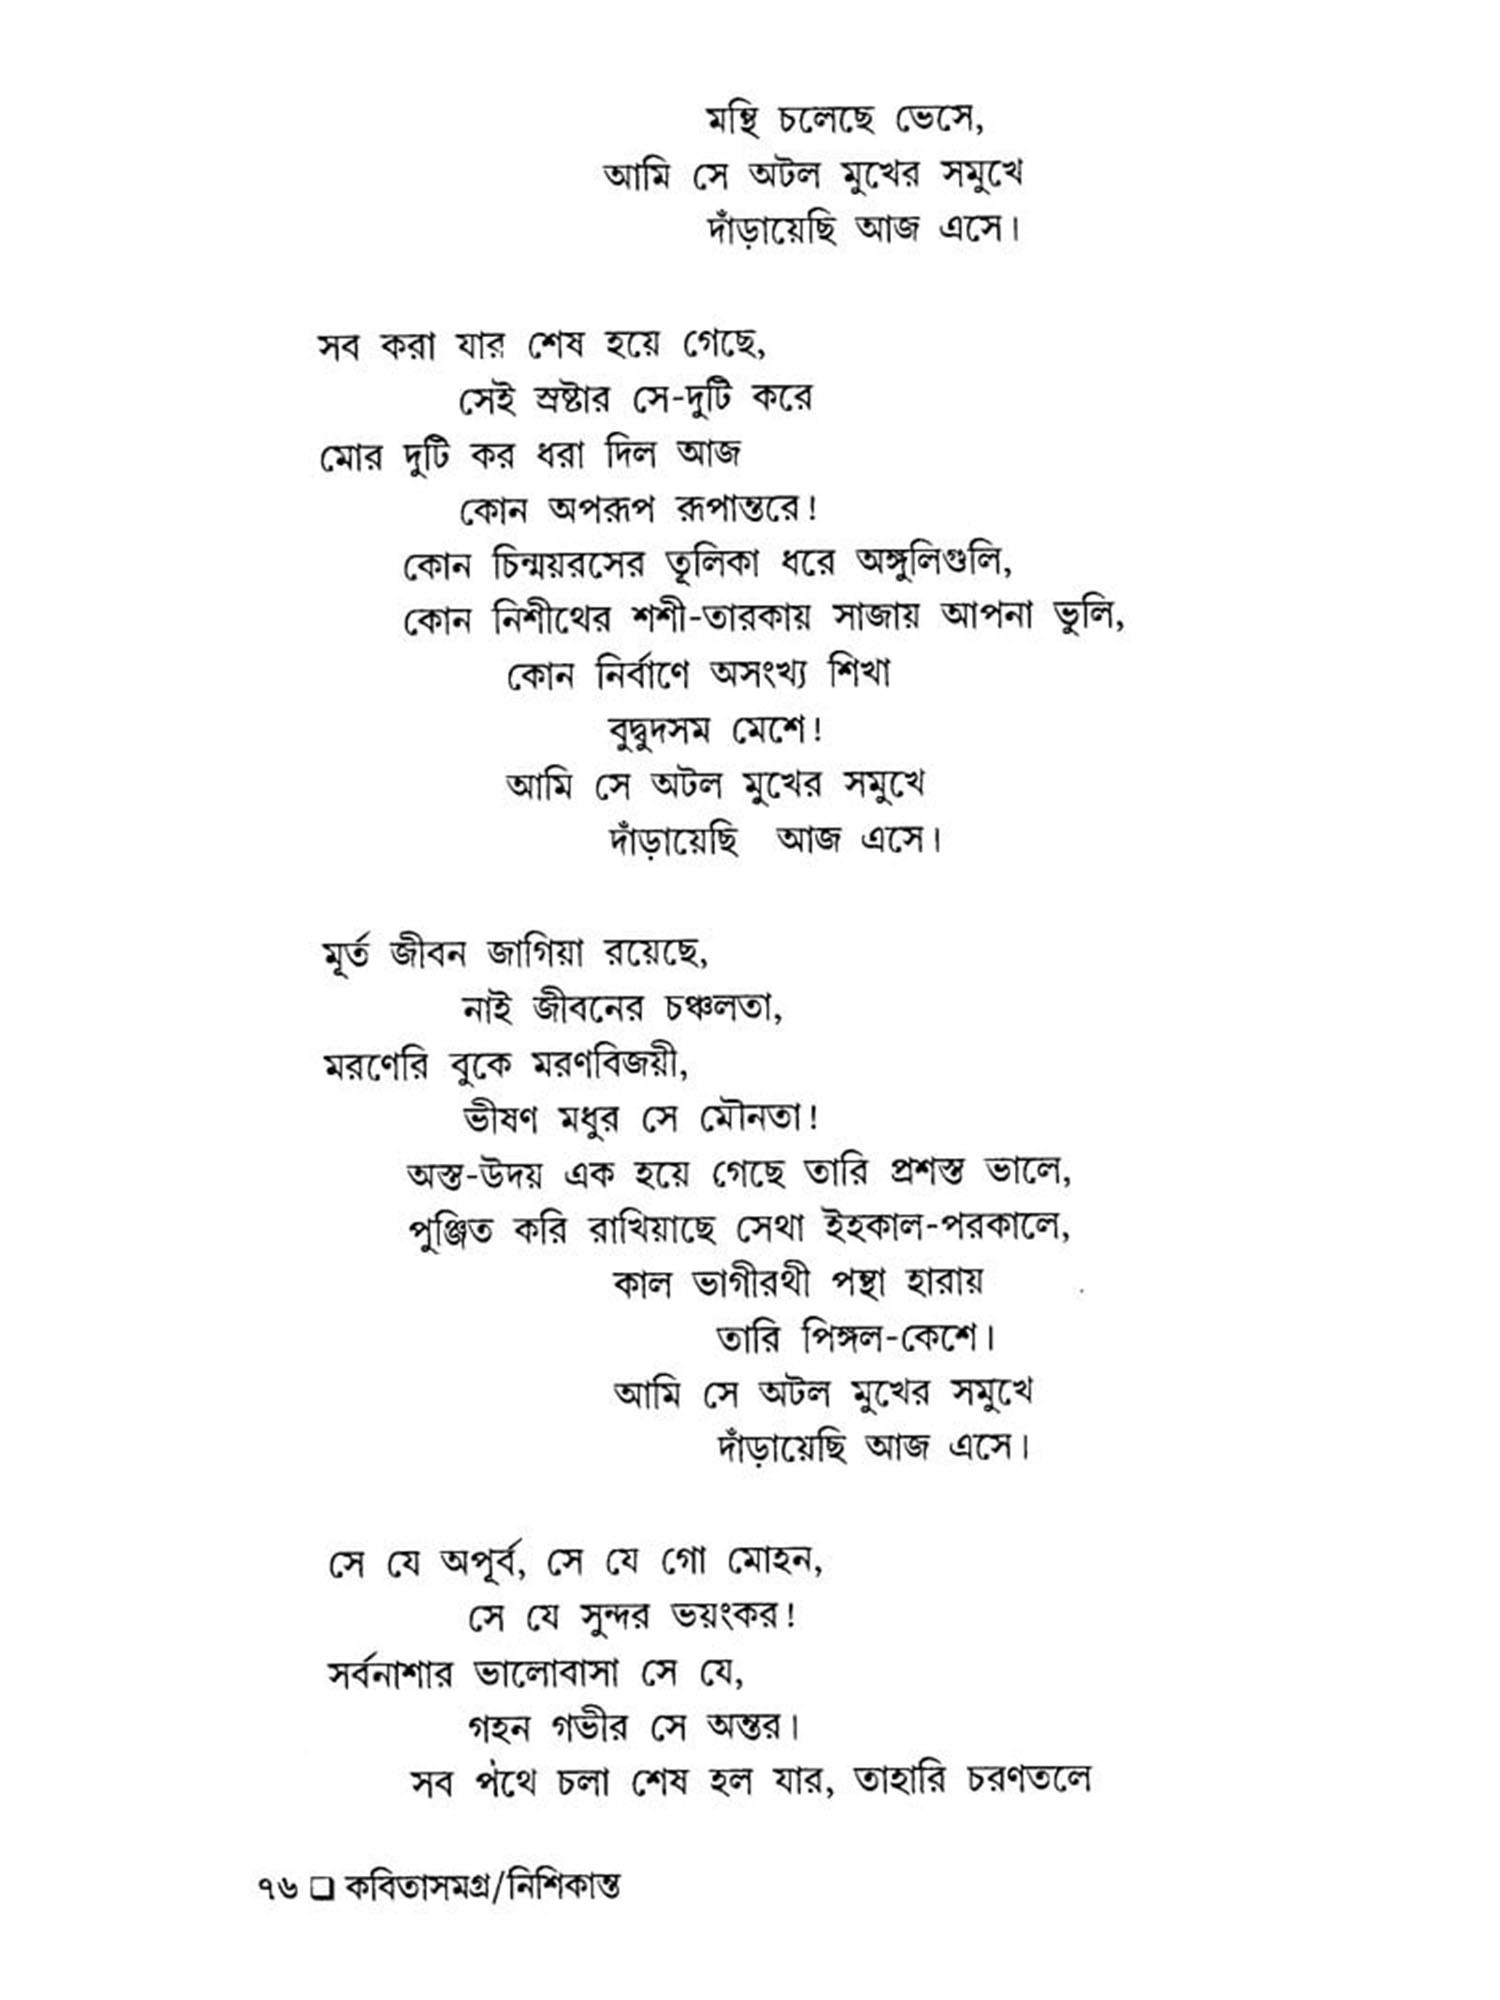 মন্থি চলেছে ভেসে,
আমি সে অটল মুখের সমুখে
দাঁড়ায়েছি আজ এসে।
সব করা যার শেষ হয়ে গেছে,
সেই স্রষ্টার সে-দুটি করে
মোর দুটি কর ধরা দিল আজ
কোন অপরূপ রূপান্তরে!
কোন চিন্ময়রসের তূলিকা ধরে অঙ্গুলিগুলি,
কোন নিশীথের শশী-তারকায় সাজায় আপনা ভুলি,
কোন নির্বাণে অসংখ্য শিখা
বুদ্বুদসম মেশে!
আমি সে অটল মুখের সমুখে
দাঁড়ায়েছি আজ এসে।
মূর্ত জীবন জাগিয়া রয়েছে,
নাই জীবনের চঞ্চলতা,
মরণেরি বুকে মরণবিজয়ী,
ভীষণ মধুর সে মৌনতা!
অস্ত-উদয় এক হয়ে গেছে তারি প্রশস্ত ভালে,
পুঞ্জিত করি রাখিয়াছে সেথা ইহকাল-পরকালে,
কাল ভাগীরথী পন্থা হারায়
তারি পিঙ্গল-কেশে।
আমি সে অটল মুখের সমুখে
দাঁড়ায়েছি আজ এসে।
সে যে অপূর্ব, সে যে গো মোহন,
সে যে সুন্দর ভয়ংকর!
সর্বনাশার ভালোবাসা সে যে,
গহন গভীর সে অন্তর।
সব পথে চলা শেষ হল যার, তাহারি চরণতলে
৭৬ ❑ কবিতাসমগ্র/নিশিকান্ত